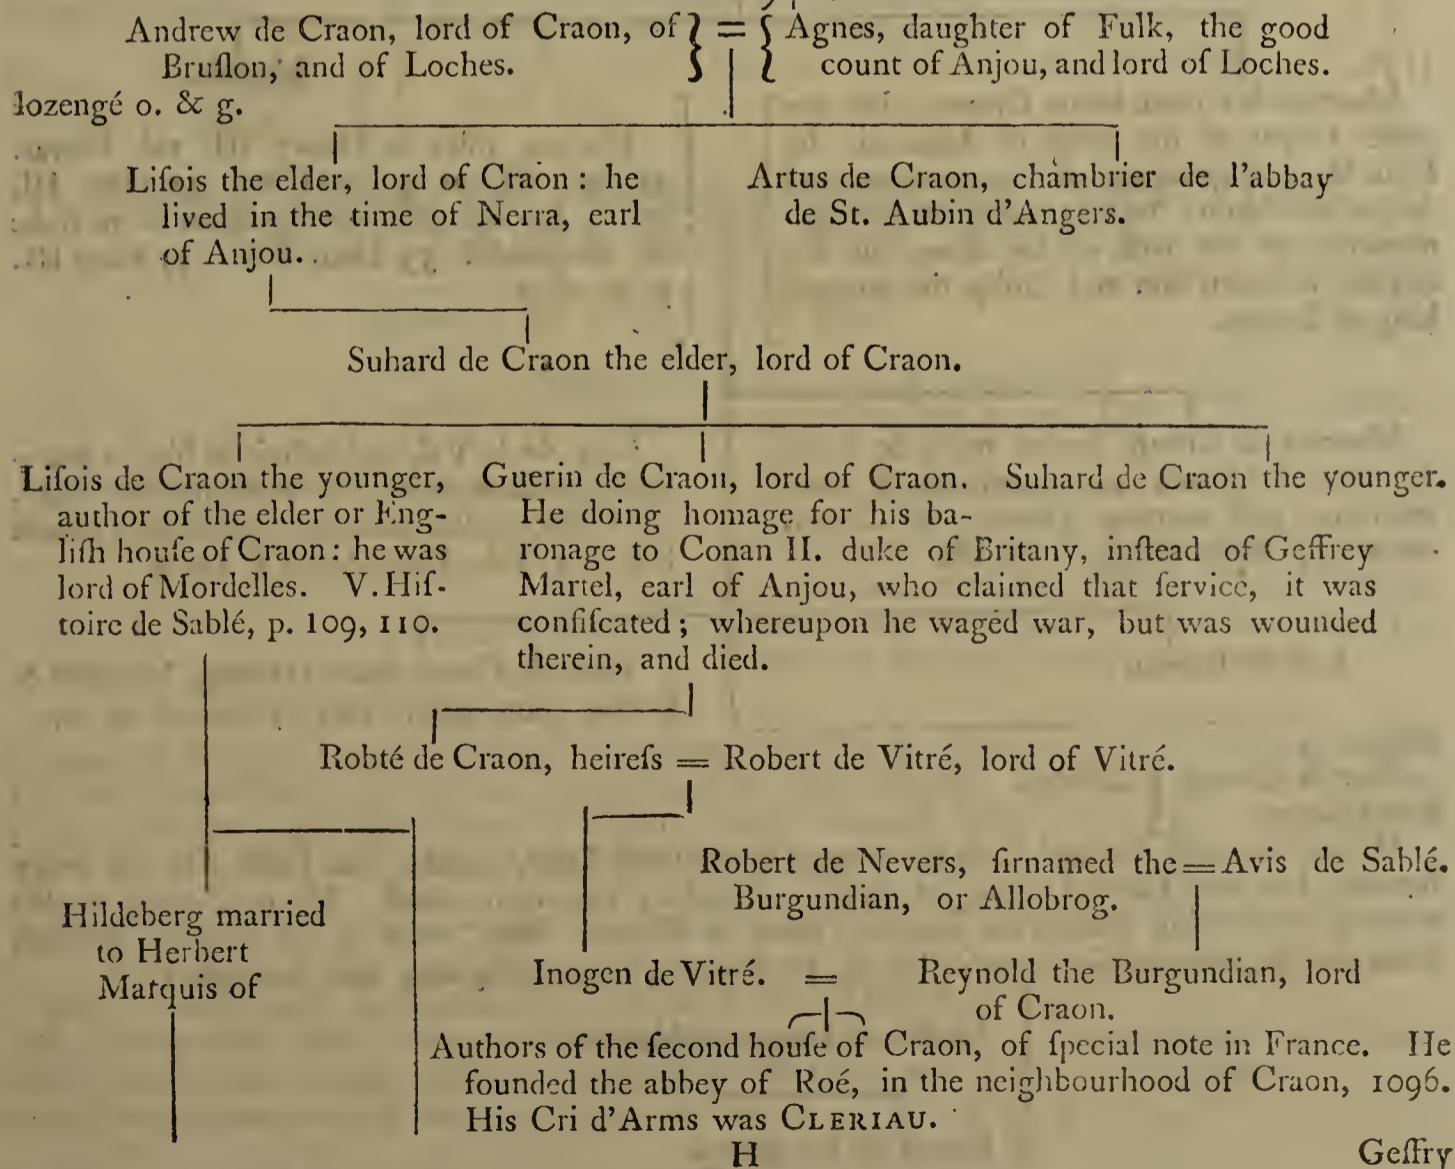 Andrew de Craon, lord of Craon, of } = { Agnes, daughter of Fulk, the good
Bruſlon, and of Loches. count of Anjou, and lord of Loches.
lozengé o. & g.
Liſois the elder, lord of Craon : he
lived in the time of Nerra, earl
of Anjou.
Artus de Craon, chambrier de l'abbay
de St. Aubin d'Angers.
Suhard de Craon the elder, lord of Craon.
Liſois de Craon the younger,
author of the elder or Eng-
liſh houſe of Craon : he was
lord of Mordelles. V. Hiſ-
toire de Sablé, p. 109, 110.
Guerin de Craon, lord of Craon.
He doing homage for his ba-
ronage to Conan II. duke of Britany, inſtead of Geffrey
Martel, earl of Anjou, who claimed that ſervice, it was
confiſcated ; whereupon he waged war, but was wounded
therein, and died.
Suhard de Craon the younger.
Robté de Craon, heireſs = Robert de Vitré, lord of Vitré.
Robert de Nevers, ſirnamed the = Avis de Sablé.
Burgundian, or Allobrog.
Hildeberg married
to Herbert
Marquis of
Inogen de Vitré. = Reynold the Burgundian, lord
of Craon.
Authors of the ſecond houſe of Craon, of ſpecial note in France. He
founded the abbey of Roé, in the neighbourhood of Craon, 1096.
His Cri d'Arms was CLERIAU.
H Geffry